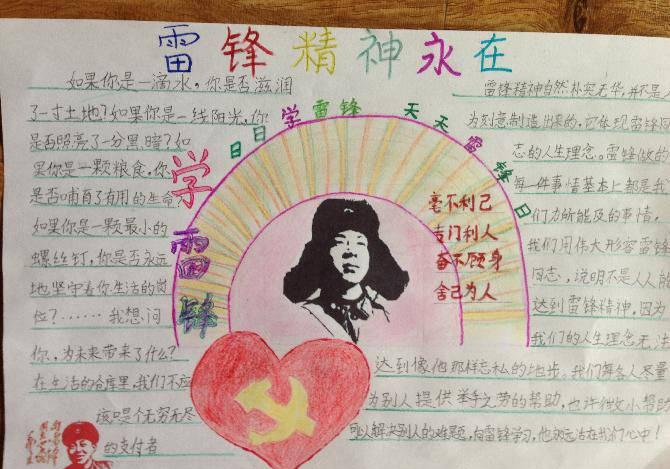 雷锋精神永在
如果你是一滴水，你是否滋润
了一寸土地？如果你是一线阳光，你
是否照亮了一分黑暗？如
果你是一颗粮食，你
是否哺育了有用的生命
如果你是一颗最小的
螺丝钉，你是否永远
地坚守着你生活的岗
位？……我想问
你，为未来带来了什么？
在生活的仓库里，我们不应
该只是个无穷无尽
的支付者
学雷锋
日日学雷锋 天天雷锋日
毫不利己
专门利人
奋不顾身
舍己为人
雷锋精神自然朴实无华，并不是人
为刻意制造出来的，它体现雷锋同
志的人生理念。雷锋做的
每一件事情基本上都是我
们力所能及的事情，
我们用伟大形容雷锋
同志，说明不是人人能
达到雷锋精神，因为
我们的人生理念无法
达到像他那样忘私的地步。我们每各人尽量
为别人提供举手之劳的帮助，也许微小帮助
可以解决别人的难题，向雷锋学习，他永远活在我们心中！